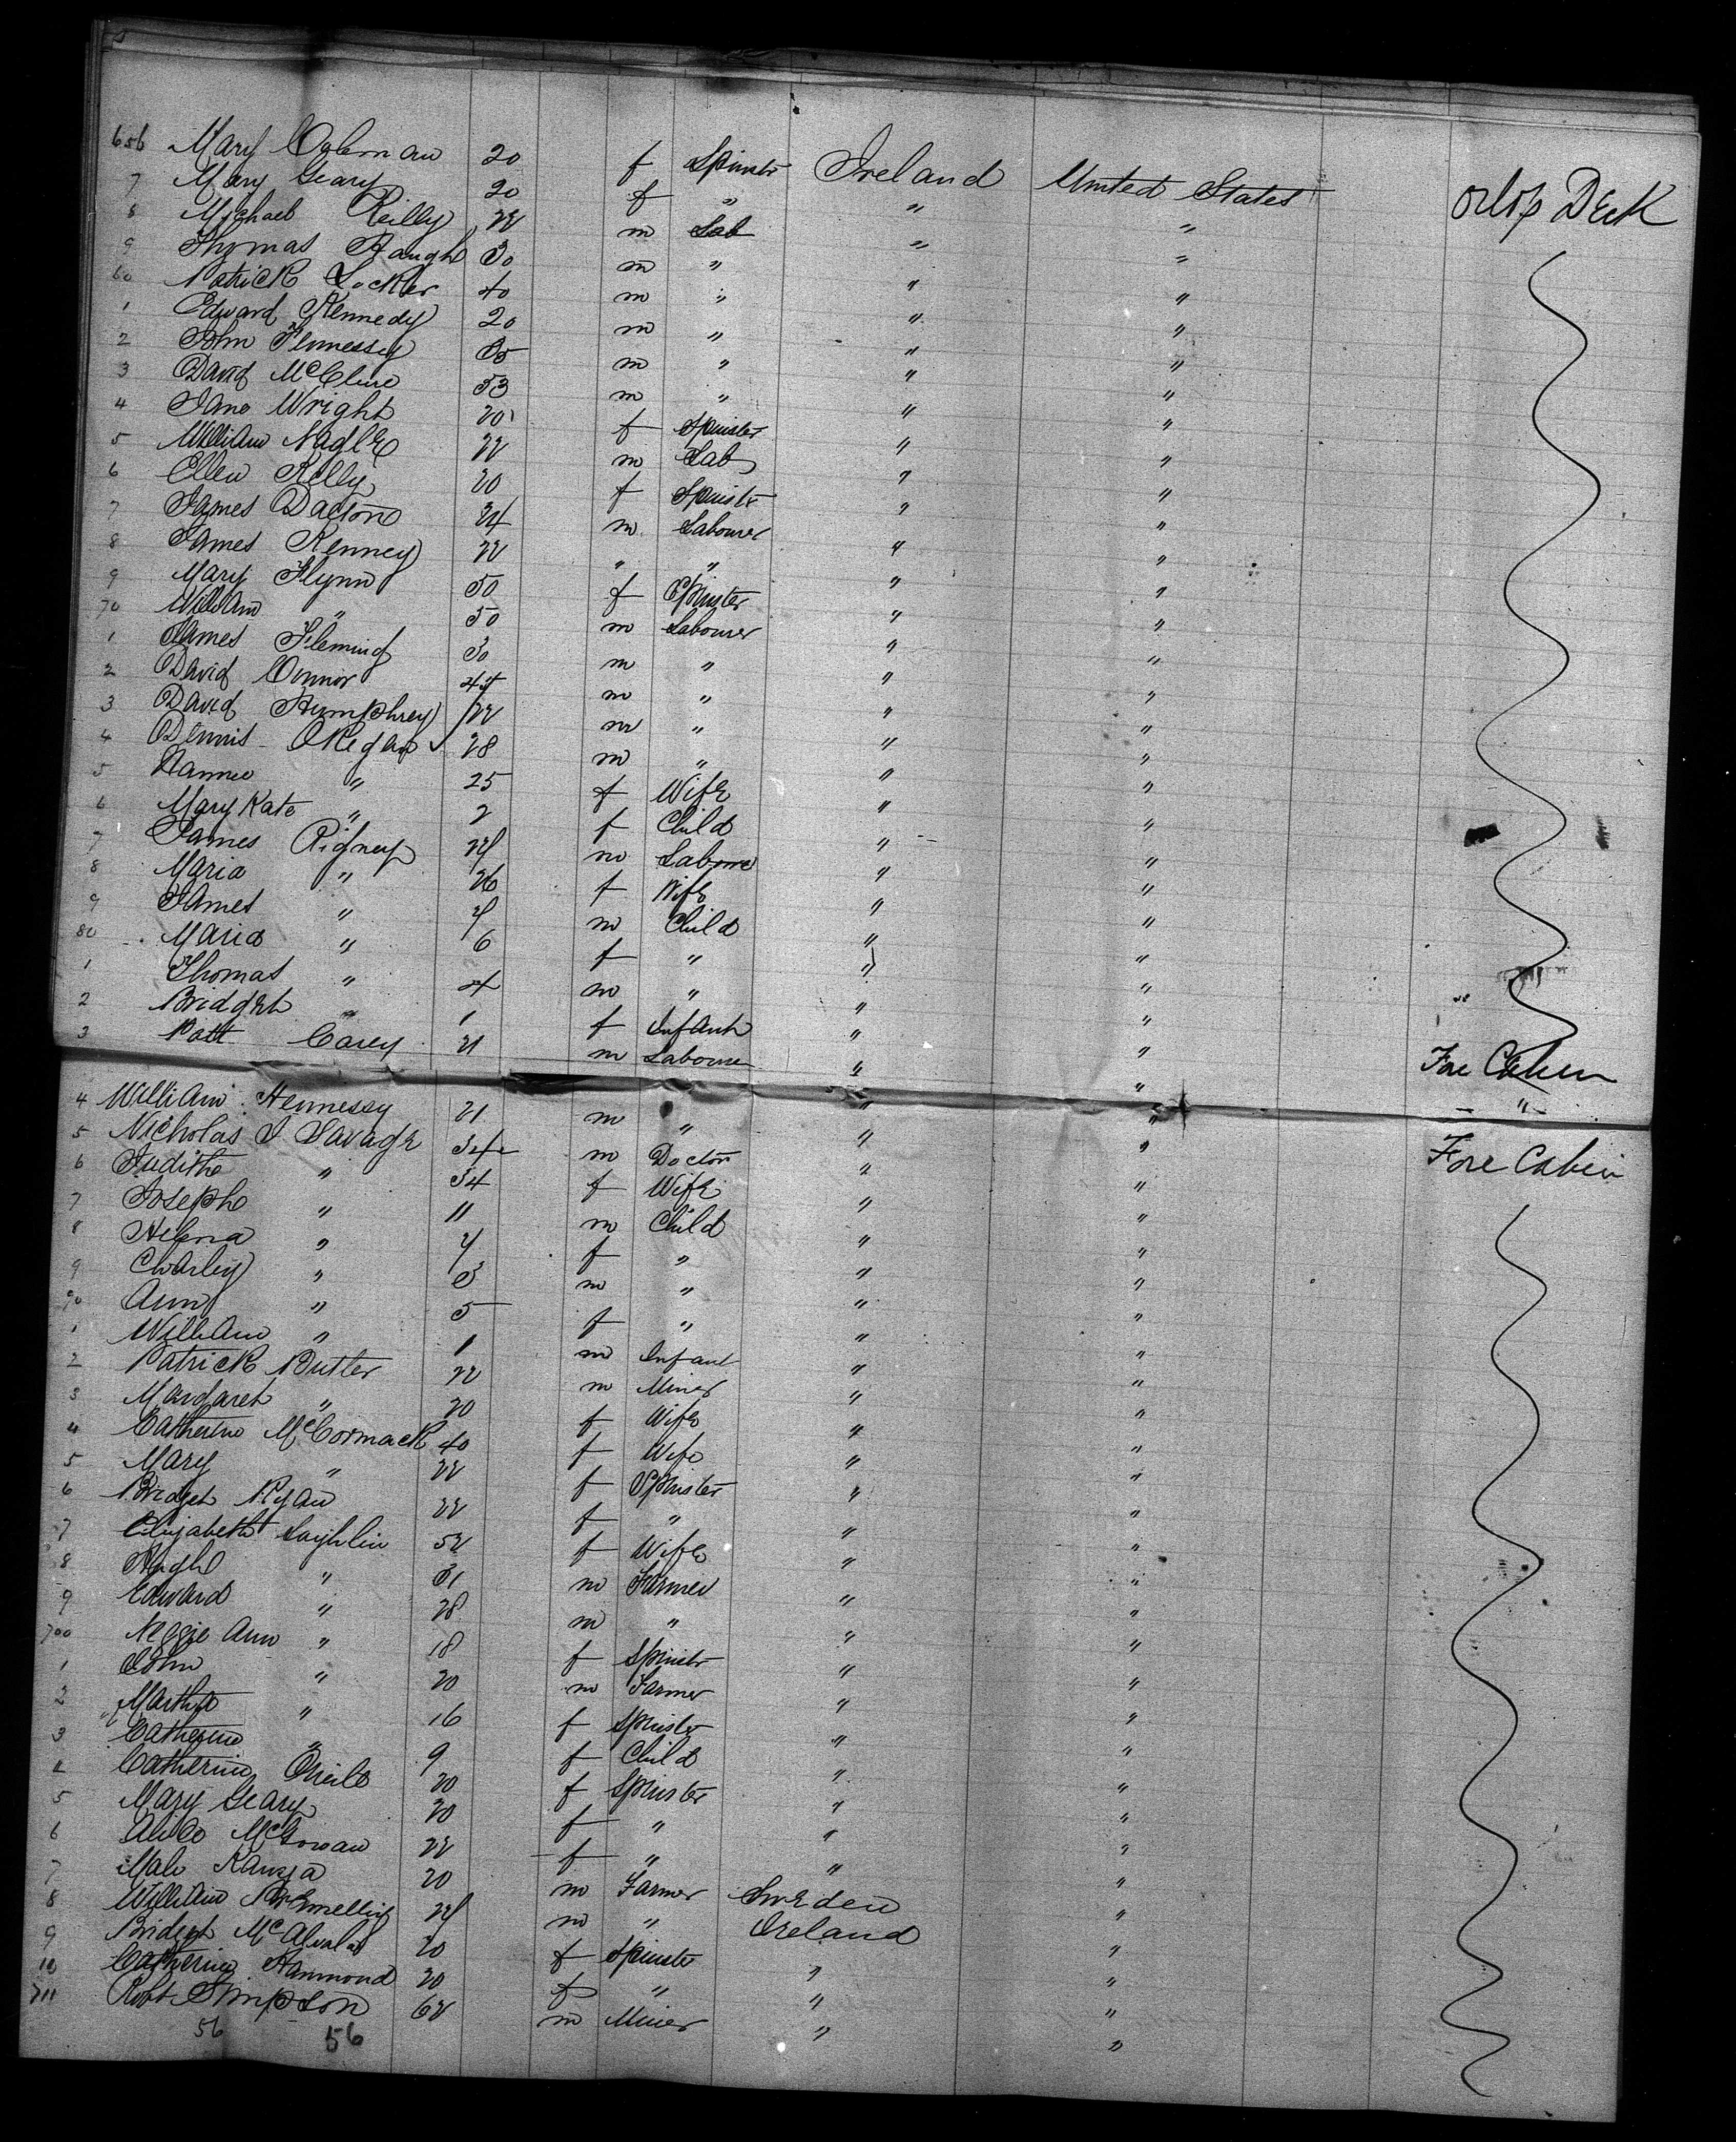 656 Mary Coleman 20 f Spinstr Ireland United States Orlop Deck
7 Mary Geary 20 f " " "
8 Michael Reilly 22 m Lab " "
9 Thomas Haugh 30 m " " "
60 Patrick Locker 40 m " " "
1 Edward Kennedy 20 m " " "
2 John Hennessy 35 m " " "
3 David McClure 53 m " " "
4 Jane Wright 20 f Spinster " "
5 William Nagle 22 m Lab " "
6 Ellen Kelly 20 f Spinstr " "
7 James Dalton 24 m Labourer " "
8 James Kenney 22 " " " "
9 Mary Flynn 50 f Spinster " "
70 William " 50 m Labourer " "
1 James Fleming 30 m " " "
2 David Connor 45 m " " "
3 David Humphrey 22 m " " "
4 Dennis ORegan 28 m " " "
5 Nannie " 25 f Wife " "
6 Mary Kate " 2 f Child " "
7 James Rigney 24 m Laboure " "
8 Maria " 26 f Wife " "
9 James " m Child " "
80 Maria " 6 f " " "
1 Thomas " 4 m " " "
2 Bridget 1 f Infant " "
3 Patt Carey 21 m Laboure " " Fore Cabin
4 William Hennessy 21 m " " " "
5 Nicholas J Savage 34 m Doctor " " Fore Cabin
6 Judith " 34 f Wife " "
7 Joseph " 11 m Child " "
8 Helena " f " " "
9 Charley " 3 m " " "
90 Ann " 5 f " " "
1 William " 1 m Infant " "
2 Patrick Butler 22 m Miner " "
3 Margaret " 20 f Wife " "
4 Catherine McCormack 40 f Wife " "
5 Mary " 22 f Spinster " "
6 Bridget Ryan 22 f " " "
7 Elizabeth Laughlin 52 f Wife " "
8 Hugh " 31 m Farmer " "
9 Edward " 28 m " " "
700 Meggie Ann " 18 f Spinstr " "
1 John " 20 m Farmer " "
2 Martha " 16 f Spinster " "
3 Catherine " 9 f Child " "
4 Catherine ONeill 20 f Spinster " "
5 Mary Geary 20 f " " "
6 Alice McGowan 22 f " " "
7 20 m Farmer Sweden "
8 William 24 m " Ireland "
9 Bridget 20 f Spinster " "
10 Catherine Hammond 20 f " " "
711 Robt Simpson 62 m Miner " "
56 56